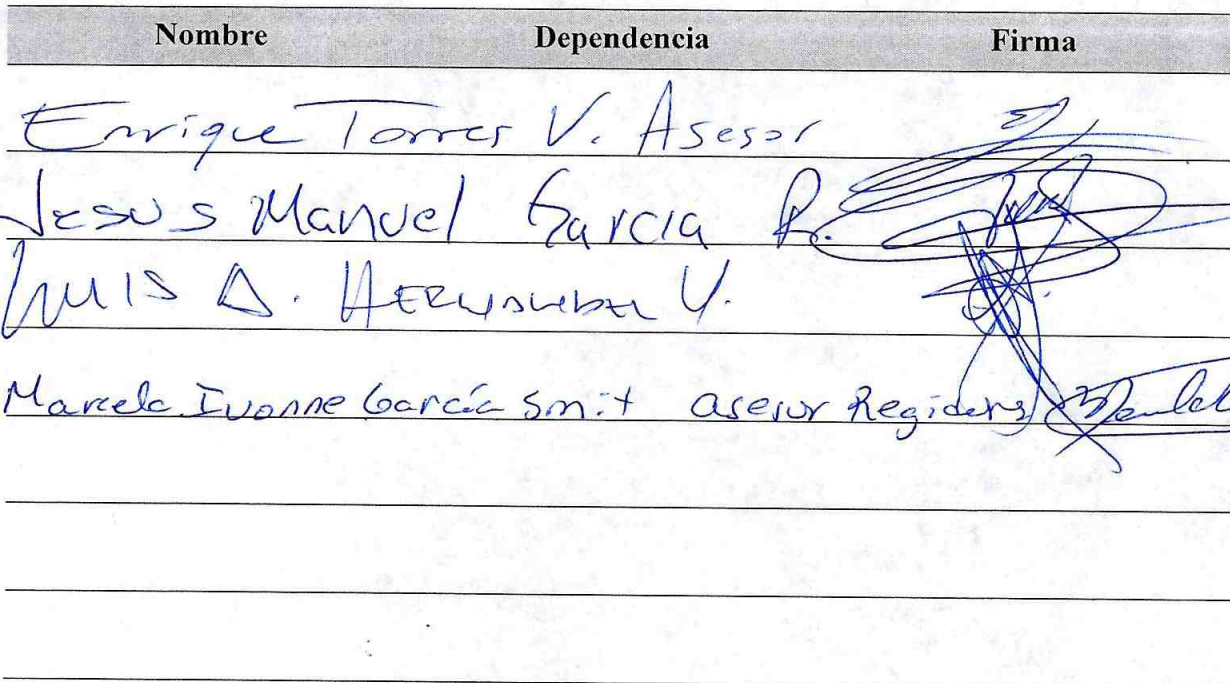 Nombre Dependencia Firma
Enrique Torres V. Asesor
Jesus Manuel Garcia R.
Luis A. Hernandez V.
Marcela Ivonne García Smit asesor